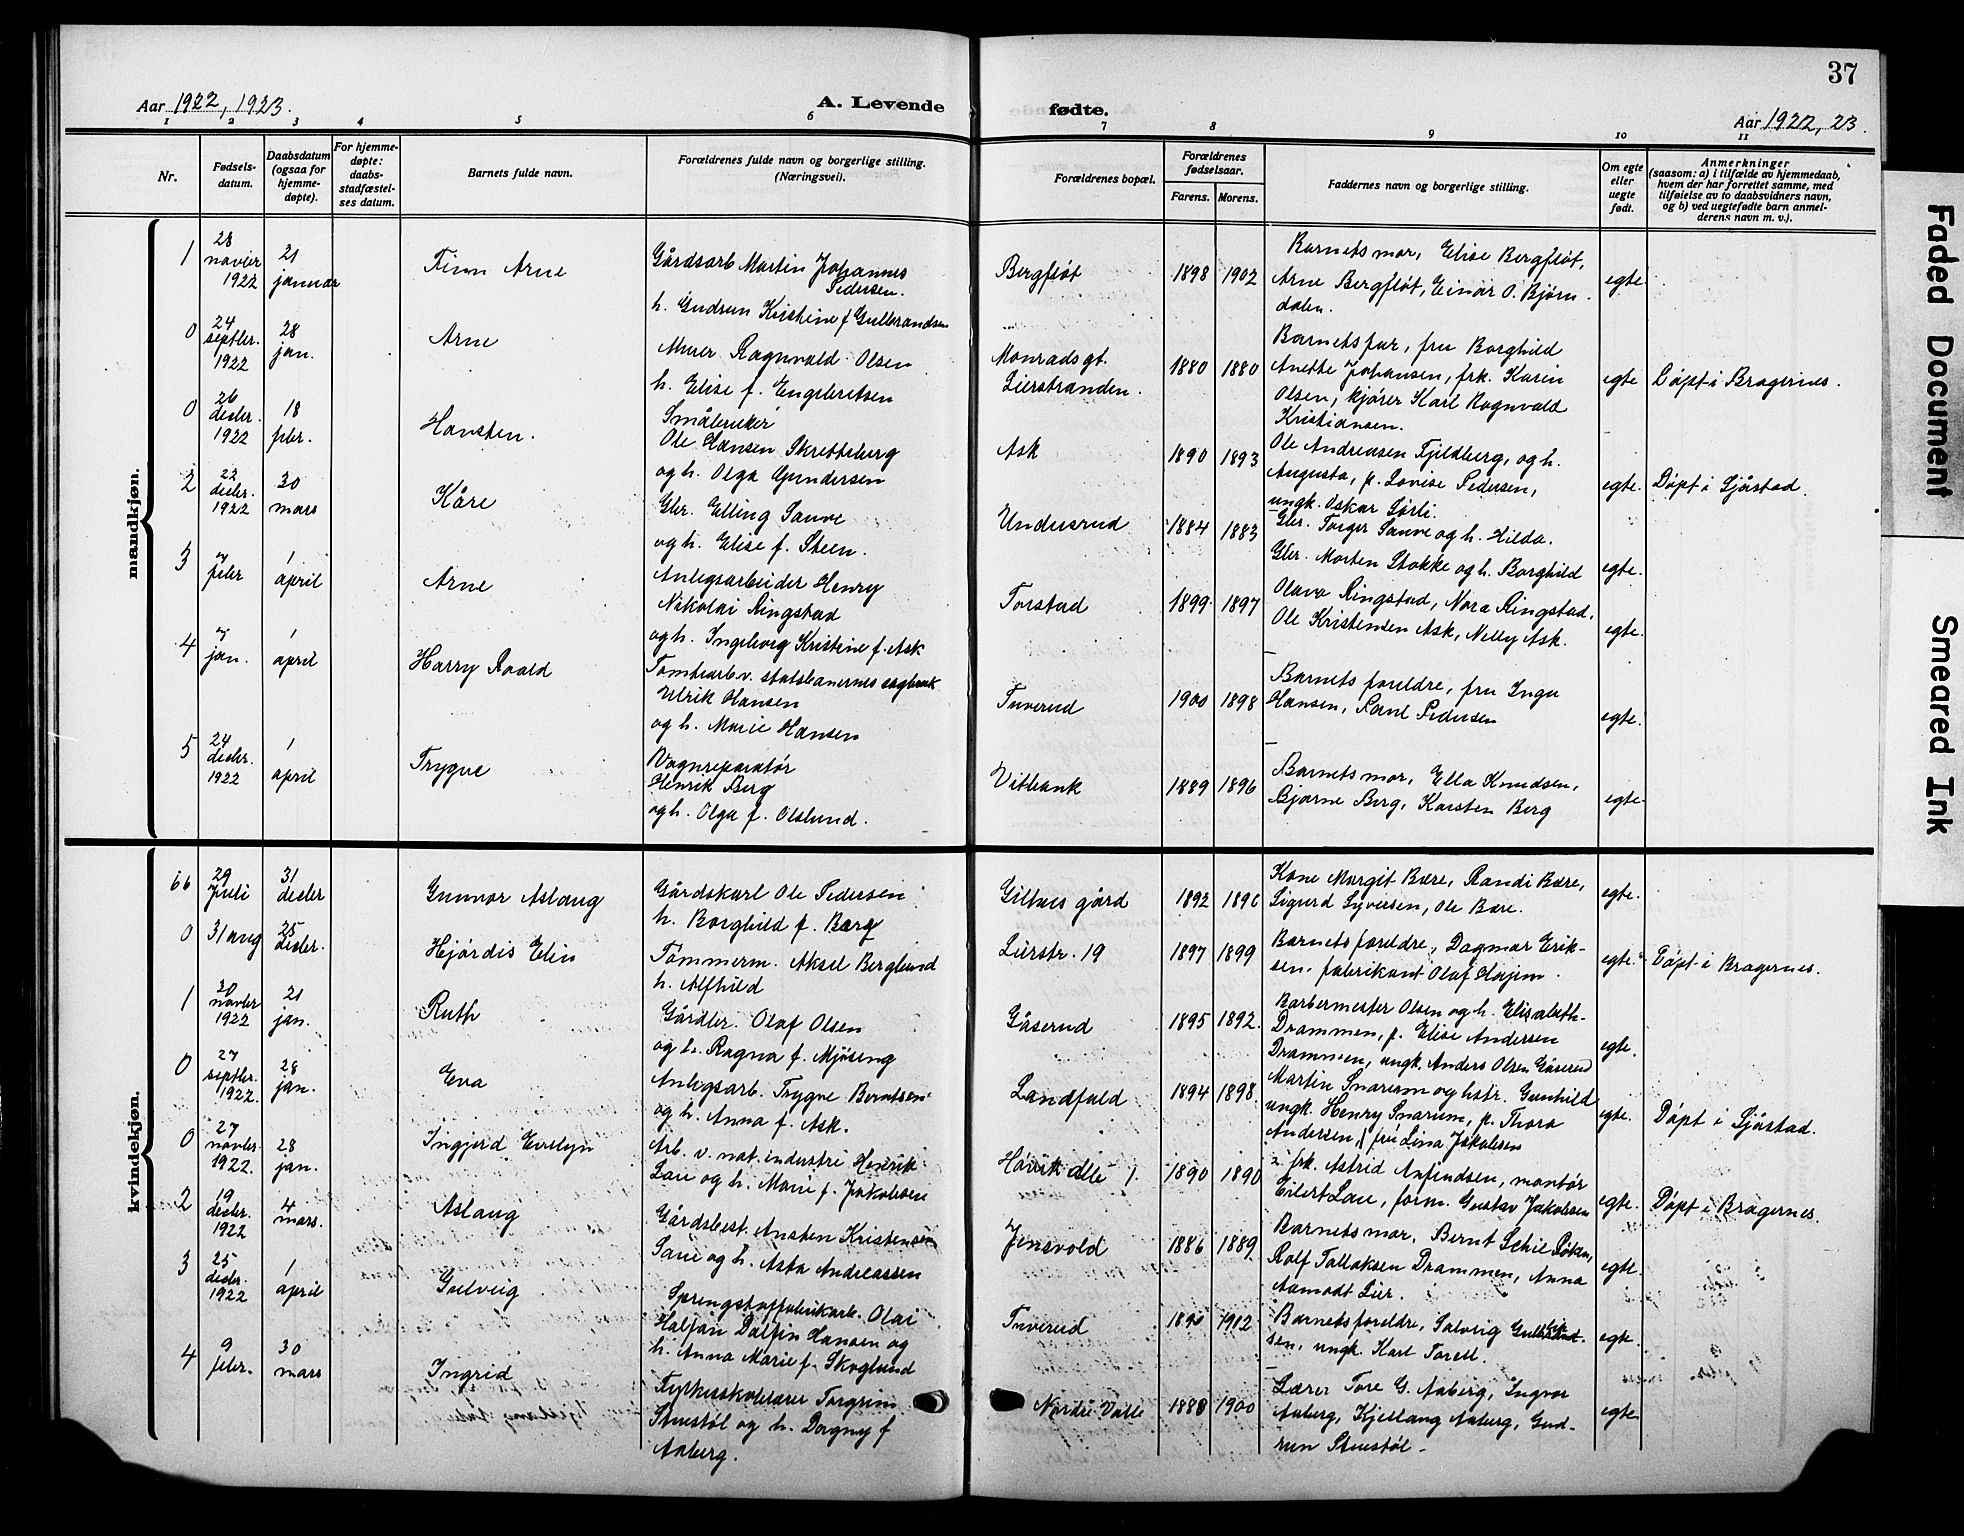 37
Aar 1922, 1923.
A. Levende
fødte.
Aar 1922, 23.
1 2 3 4 5 6 7 8 9 10 11
Nr.
Fødsels-
datum.
Daabsdatum
(ogsaa for
hjemme-
døpte).
For hjemme-
døpte:
daabs-
stadfæstel-
ses datum.
Barnets fulde navn.
Forældrenes fulde navn og borgerlige stilling.
(Næringsvei).
Forældrenes bopæl.
Forældrenes
fødselsaar.
Farens. Morens.
Faddernes navn og borgerlige stilling.
Om egte
eller
uegte
født.
Anmerkninger
(saasom: a) i tilfælde av hjemmedaab,
hvem der har forrettet samme, med
tilføielse av to daabsvidners navn,
og b) ved uegtefødte barn anmel-
derens navn m. v.).
mandkjøn.
1
28
novber
1922
21
januar
Finn Arne
Gårdsarb Martin Johannes
Pedersen.
h. Gudrun Kristine f Gulbrandsen
Bergfløt
1898 1902
Barnets mor, Elise Bergfløt,
Arne Bergfløt, Einar O. Bjørn
dalen.
egte.
0
24
septbr.
1922
28
jan.
Arne
Murer Ragnvald Olsen
h. Elise f. Engebretsen
Monradsgt.
Lierstranden.
1880 1880
Barnets far, fru Borghild
Anette Johansen, frk. Karin
Olsen, kjører Karl Ragnvald
Kristiansen.
egte
Døpt i Bragernes.
0
26
desbr.
1922
18
febr.
Hansten.
Småbruker
Ole Hansen Skretteberg
og h. Olga Gundersen
Ask
1890 1893
Ole Andreasen Fjeldberg, og h.
Augusta, p. Lovise Pedersen,
ungk. Oskar Sørli.
egte.
Døpt i Sjåstad.
2
22
desbr.
1922
30
mars
Kåre
Gbr. Elling Sauve
og h. Elise f. Steen.
Underrud
1884 1883
Gbr. Torger Sauve og h. Hilda.
Gbr. Morten Stokke og h. Borghild
egte.
3
7
febr
1
april
Arne
Anlegsarbeider Henry
Nikolai Ringstad
og h. Ingeborg Kristine f. Ask
Torstad
1899 1897
Olava Ringstad, Nora Ringstad,
Ole Kristensen Ask, Nelly Ask.
egte.
4
7
jan.
1
april
Harry Roald
Tomtearb v. statsbanernes sagbruk
Ulrik Hansen
og h. Marie Hansen
Tuverud
1900 1898
Barnets foreldre, fru Inga
Hansen, Paul Pedersen
egte.
5
24
desbr.
1922
1
april
Trygve
Vognreparatør
Henrik Berg
og h. Olga f. Olslund.
Vitbank
1889 1896
Barnets mor, Ella Knudsen,
Bjarne Berg, Karsten Berg
egte.
kvindekjøn.
66
29
Juli
31
desbr
Gunvor Aslaug
Gårdskarl Ole Pedersen
h. Borghild f. Berg
Gilhus gård
1892 1896
Kone Margit Bære, Randi Bære,
Sigurd Syversen, Ole Bære.
egte.
0
31 aug
25
desbr.
Hjørdis Elin
Tømmerm. Aksel Berglund
h. Alfhild
Lierstr. 19
1897 1899
Barnets foreldre, Dagmar Erik-
sen, fabrikant Olaf
egte.
Døpt i Bragernes.
1
20
novber
1922
21
jan.
Ruth
Gårdbr. Olaf Olsen
og h. Ragna f. Mjøseng
Gåserud
1895 1892.
Barbermester Olsen og h. Elisabeth
Drammen, p. Elise Andersen
Drammen, ungk. Anders Olsen Gåserud
egte.
0
27
septbr.
1922.
28
jan.
Eva
Anlegsarb. Trygve Berntsen
og h. Anna f. Ask.
Landfald
1894 1898
Martin Snarum og hstr. Gunhild
ungk. Henry Snarum, p. Thora
Andersen,
egte.
Døpt i Sjåstad.
0
27
novber.
1922.
28
jan.
Ingjerd Evelyn
Arb. v. nat. industri Henrik
Lae og h. Marie f. Jakobsen
1890 1890
fru Lina Jakobsen
frk. Astrid Anfindsen, montør
Eilert Lae, form. Gustav Jakobsen
egte.
Døpt i Bragernes.
2
19
desbr.
1922
4
mars.
Aslaug
Gårdsbest. Ansten Kristensen
Sane og h. Asta Andreassen
Jensvold
1886 1889
Barnets mor, Bernt Schie Røken,
Rolf Tallaksen Drammen, Anna
Aamodt Lier.
egte.
3
25
desbr.
1922
1
april
Gulveig
Sprengstoffabrikarb. Olai
Halfdan Dalfin Hansen og
h. Anna Marie f. Skoglund
Tuverud
1902
Barnets foreldre, Solveig
sen, ungk. Karl Torell.
egte.
4
9
febr.
30
mars
Ingrid
Fyrkesskolelærer Torgrim
Stuestøl og h. Dagny f
Aaberg.
Nordre Valle
1888 1900
Lærer Tore G. Aaberg, Ingvor
Aaberg, Kjellaug Aaberg, Gud-
run Stuestøl.
egte
Faded Document
Smeared Ink